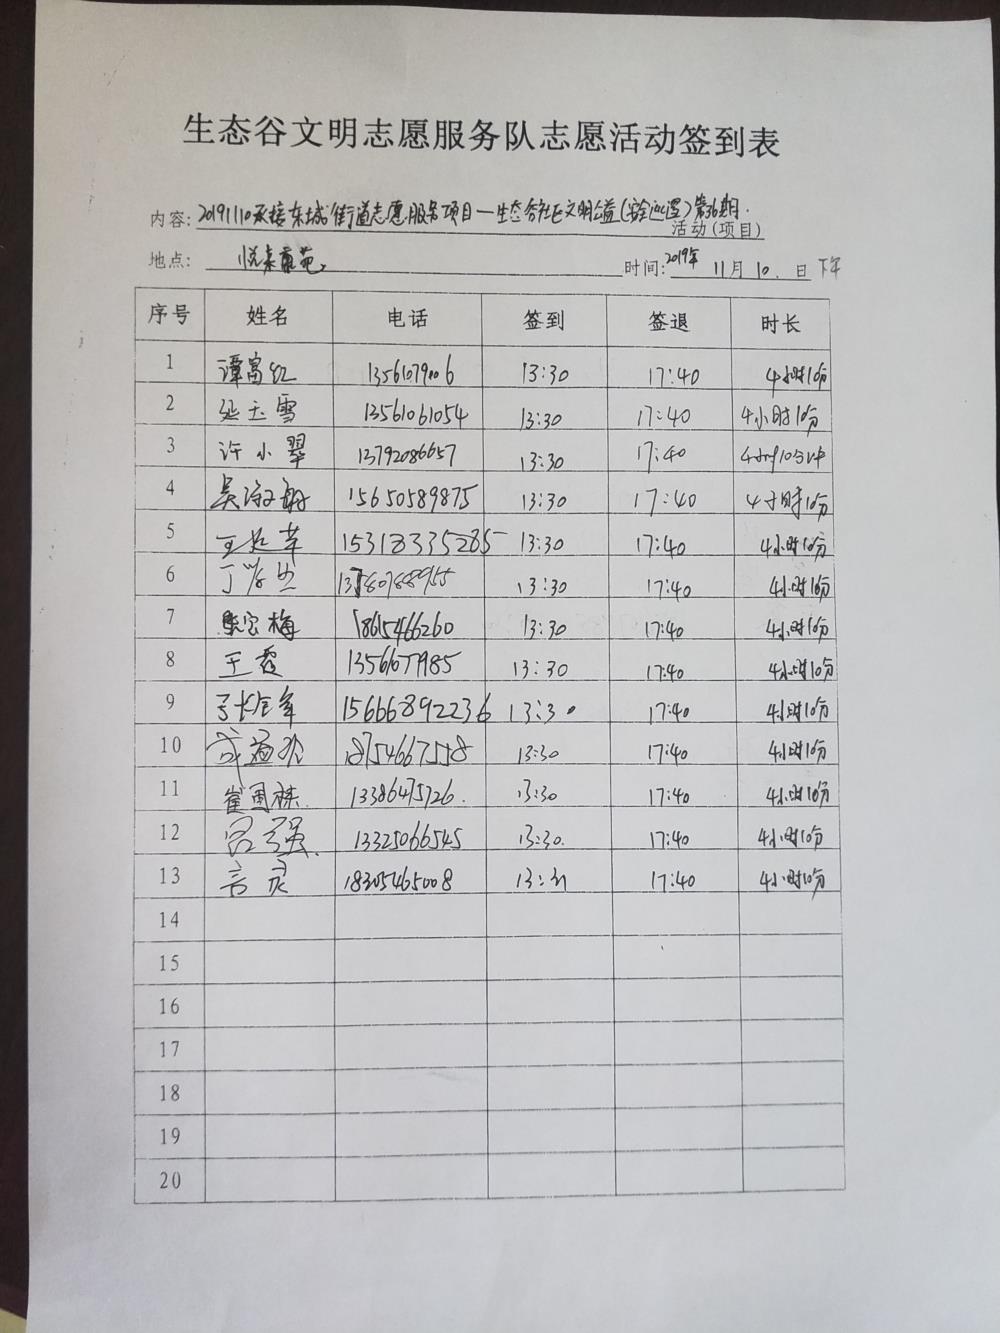 生态谷文明志愿服务队志愿活动签到表
内容: 20191110承接东城街道志愿服务项目—生态谷社区文明公益(安全巡逻)第36期. 活动(项目)
地点: 悦来 苑 时间: 2019年 11月 10. 日 下午
序号 姓名 电话 签到 签退 时长
1 谭富红 13561079006 13:30 17:40 4小时10分
2 延玉雪 13561061054 13:30 17:40 4小时10分
3 许小翠 13792086657 13:30 17:40 4小时10分钟
4 吴 15650589875 13:30 17:40 4小时10分
5 王 苹 15318335285 13:30 17:40 4小时10分
6 丁 13:30 17:40 4小时10分
7 梅 18615466260 13:30 17:40 4小时10分
8 王霞 13:30 17:40 4小时10分
9 15666892236 13:30 17:40 4小时10分
10 18754667558 13:30 17:40 4小时10分
11 崔国栋. 13386475726. 13:30 17:40 4小时10分
12 吕强. 13325066545 13:30. 17:40 4小时10分
13 18305465008 13:31 17:40 4小时10分
14
15
16
17
18
19
20